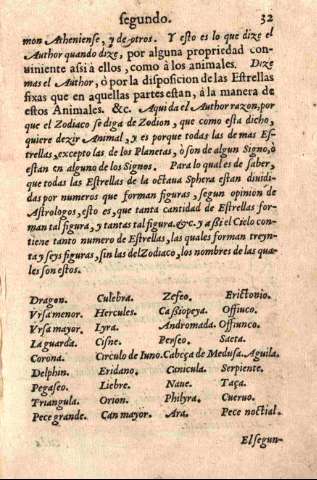 segundo. 32
mon Atheniense, y de otros. Y esto es lo que dize el
Author quando dize, por alguna propriedad con-
uiniente assi à ellos, como à los animales. Dize
mas el Author, ò por la disposicion de las Estrellas
fixas que en aquellas partes estan, à la manera de
estos Animales. &c. Aqui da el Author razon, por
que el Zodiaco se diga de Zodion, que como esta dicho,
quiere dezir Animal, y es porque todas las de mas Es-
trellas, excepto las de los Planetas, ò son de algun Signo, ò
estan en alguno de los Signos. Para lo qual es de saber,
que todas las Estrellas de la octaua Sphera estan diuidi-
das por numeros que forman figuras, segun opinion de
Astrologos, esto es, que tanta cantidad de Estrellas for-
man tal figura, y tantas tal figura. &c. y assi el Cielo con-
tiene tanto numero de Estrellas, las quales forman treyn-
ta y seys figuras, sin las del Zodiaco, los nombres de las qua-
les son estos.
Dragon. Culebra. Zefeo. Erictonio.
Vrsa menor. Hercules. Cassiopeya. Offiuco.
Vrsa mayor. Lyra. Andromada. Offiunco.
La guarda. Cisne. Perseo. Saeta.
Corona. Circulo de Iuno. Cabeça de Medusa. Aguila.
Delphin. Eridano. Canicula. Serpiente.
Pegaseo. Liebre. Naue. Taça.
Triangula. Orion. Philyra. Cueruo.
Pece grande. Can mayor. Ara. Pece noctial.
El segun-